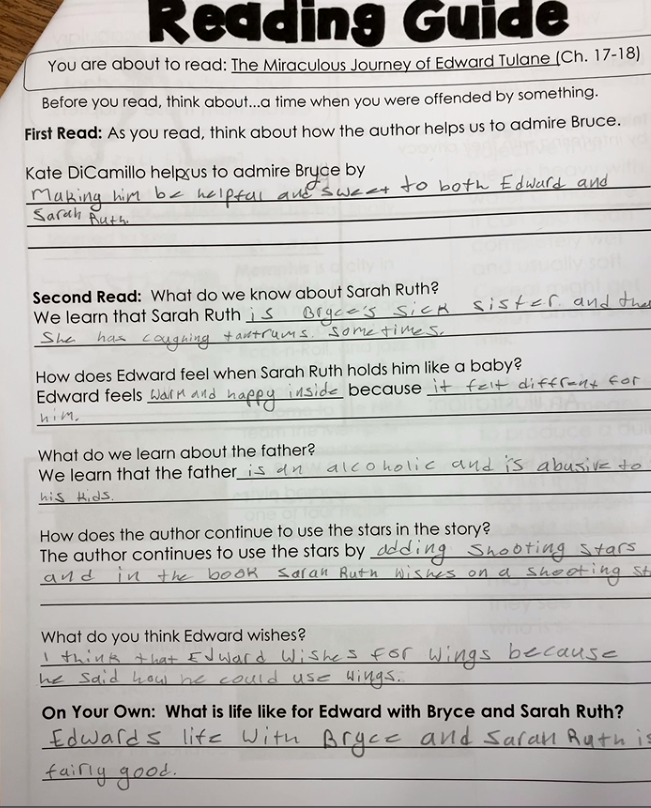 Reading Guide
You are about to read: The Miraculous Journey of Edward Tulane (Ch. 17-18)
Before you read, think about...a time when you were offended by something.
First Read: As you read, think about how the author helps us to admire Bruce.
Kate DiCamillo helps us to admire Bryce by
Making him be helpful and sweet to both Edward and
Sarah Ruth.
Second Read: What do we know about Sarah Ruth?
We learn that Sarah Ruth is Bryce's sick sister and
She has coughing tantrums. sometimes.
How does Edward feel when Sarah Ruth holds him like a baby?
Edward feels warm and happy inside because it felt diffrent for
him.
What do we learn about the father?
We learn that the father is an alcoholic and is abusive to
his kids.
How does the author continue to use the stars in the story?
The author continues to use the stars by adding shooting stars
and in the book Sarah Ruth wishes on a shooting st
What do you think Edward wishes?
I think that Edward wishes for wings because
he said how he could use wings.
On Your Own: What is life like for Edward with Bryce and Sarah Ruth?
Edwards life with Bryce and Sarah Ruth is
fairly good.